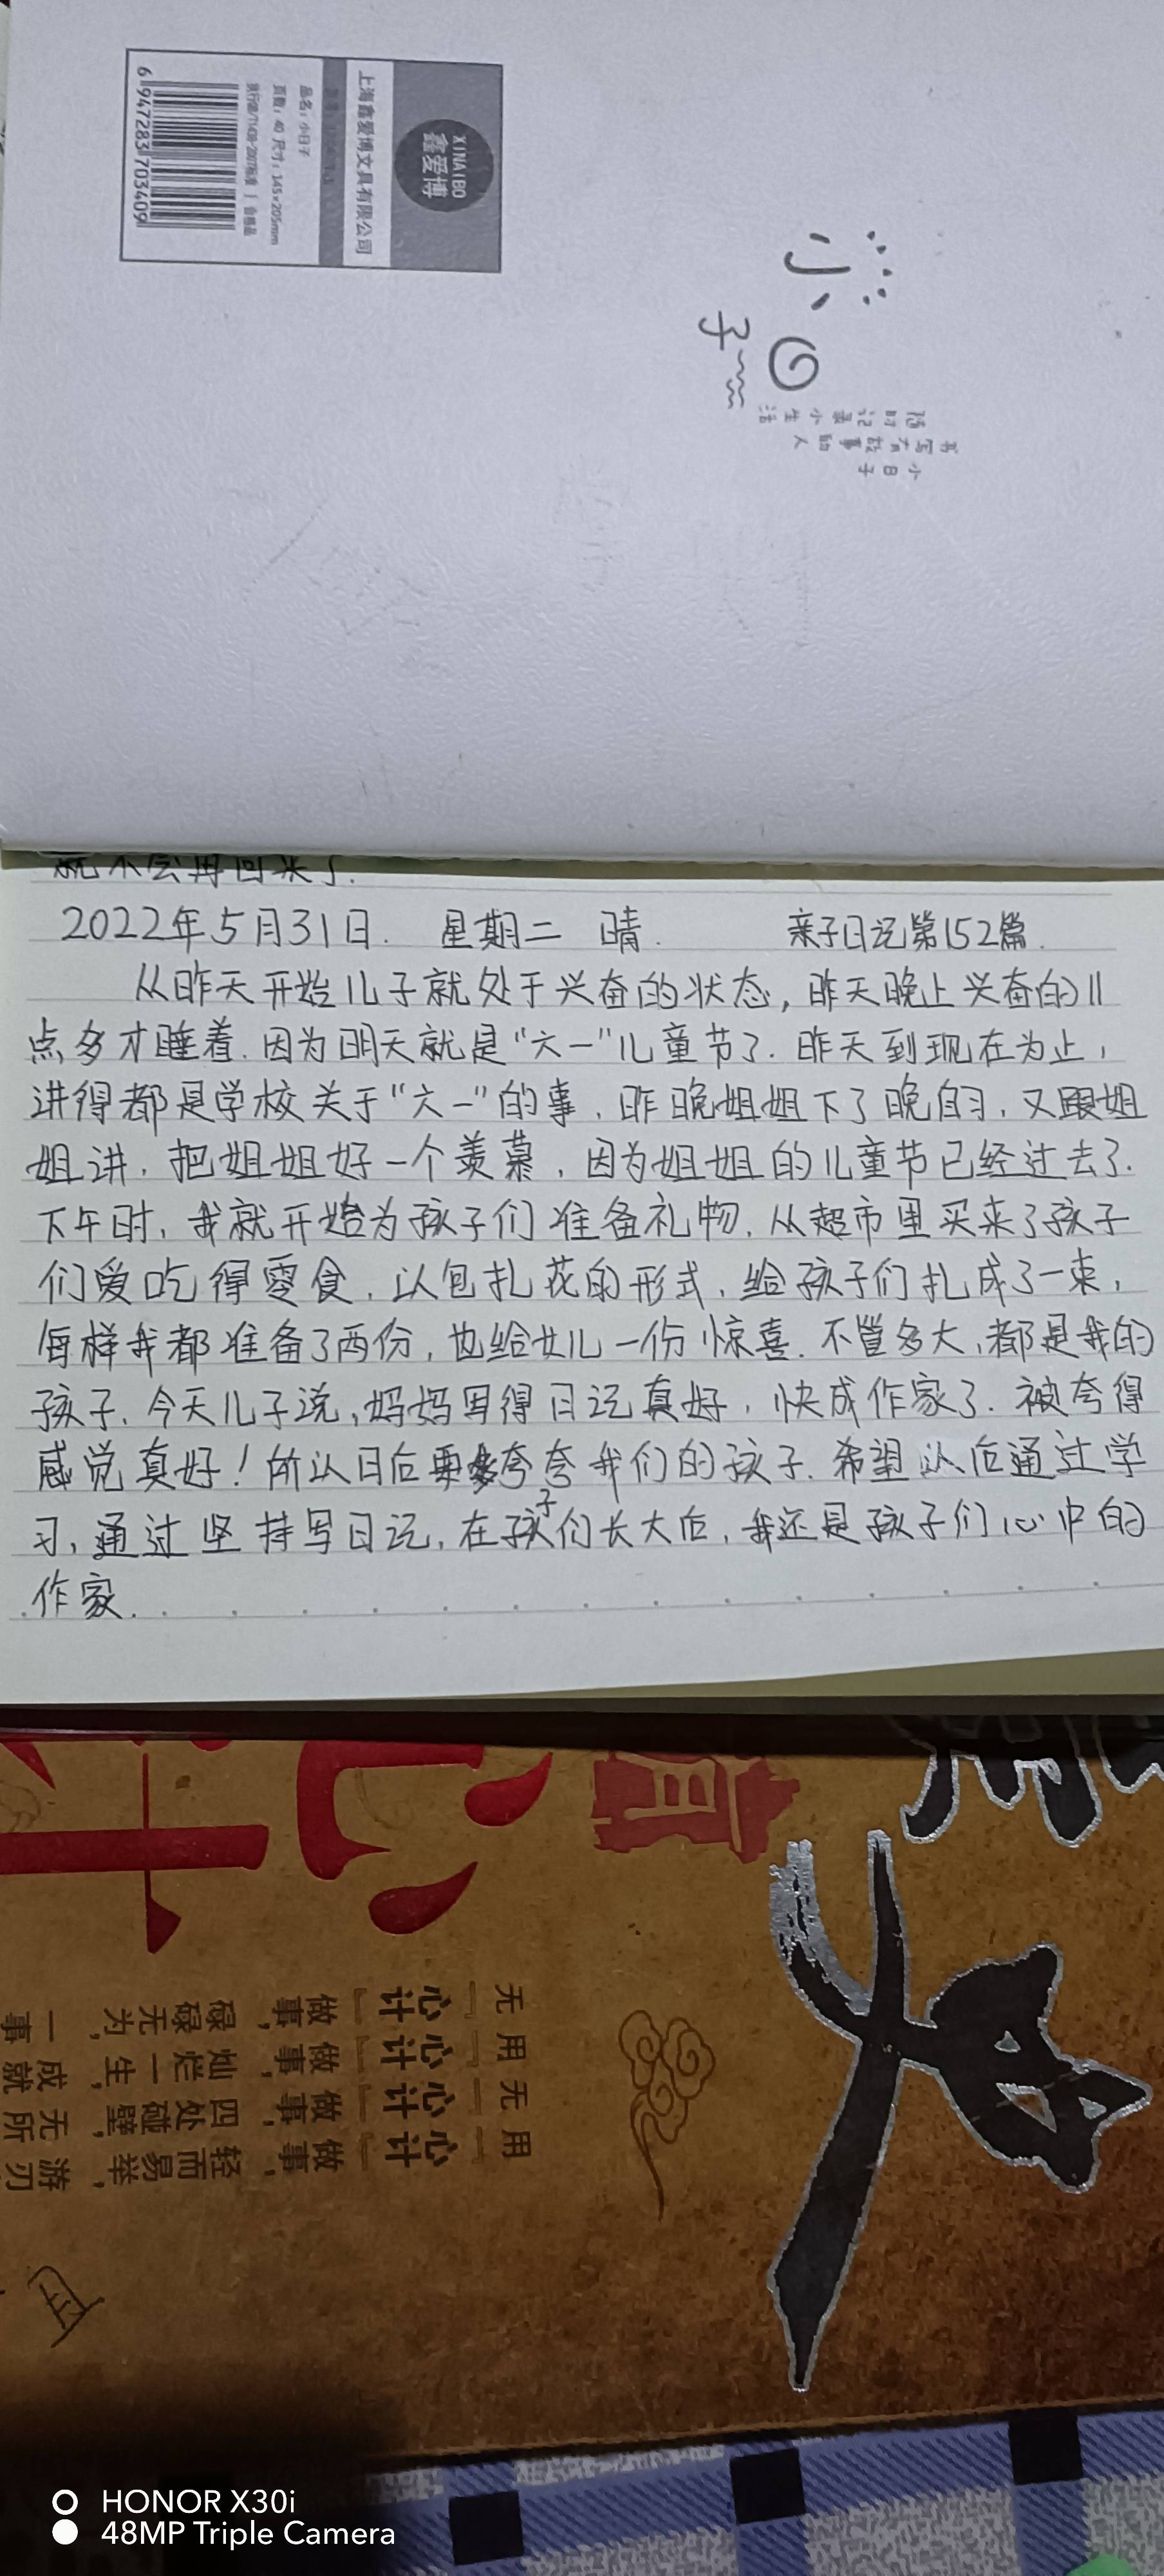 XINAIBO
鑫爱博
上海鑫爱博文具有限公司
品名：小日子
页数：40 尺寸：145×205mm
6 947283 703409
小日子
随时记录小生活
书写有故事的人
小日子
就不会再回来了.
2022年5月31日. 星期二 晴. 亲子日记第152篇.
从昨天开始儿子就处于兴奋的状态，昨天晚上兴奋的11
点多才睡着.因为明天就是“六一”儿童节了.昨天到现在为止，
讲得都是学校关于“六一”的事.昨晚姐姐下了晚自习，又跟姐
姐讲，把姐姐好一个羡慕，因为姐姐的儿童节已经过去了.
下午时，我就开始为孩子们准备礼物.从超市里买来了孩子
们爱吃得零食，以包扎花的形式，给孩子们扎成了一束，
每样我都准备了两份，也给女儿一份惊喜.不管多大，都是我的
孩子.今天儿子说，妈妈写得日记真好，快成作家了.被夸得
感觉真好！所以日后要多夸夸我们的孩子.希望以后通过学
习，通过坚持写日记，在孩子们长大后，我还是孩子们心中的
作家.
心计
无『心计』做事，碌碌无为，一事
用『心计』做事，灿烂一生，成就
无『心计』做事，四处碰壁，无所
用『心计』做事，轻而易举，游刃
HONOR X30i
48MP Triple Camera